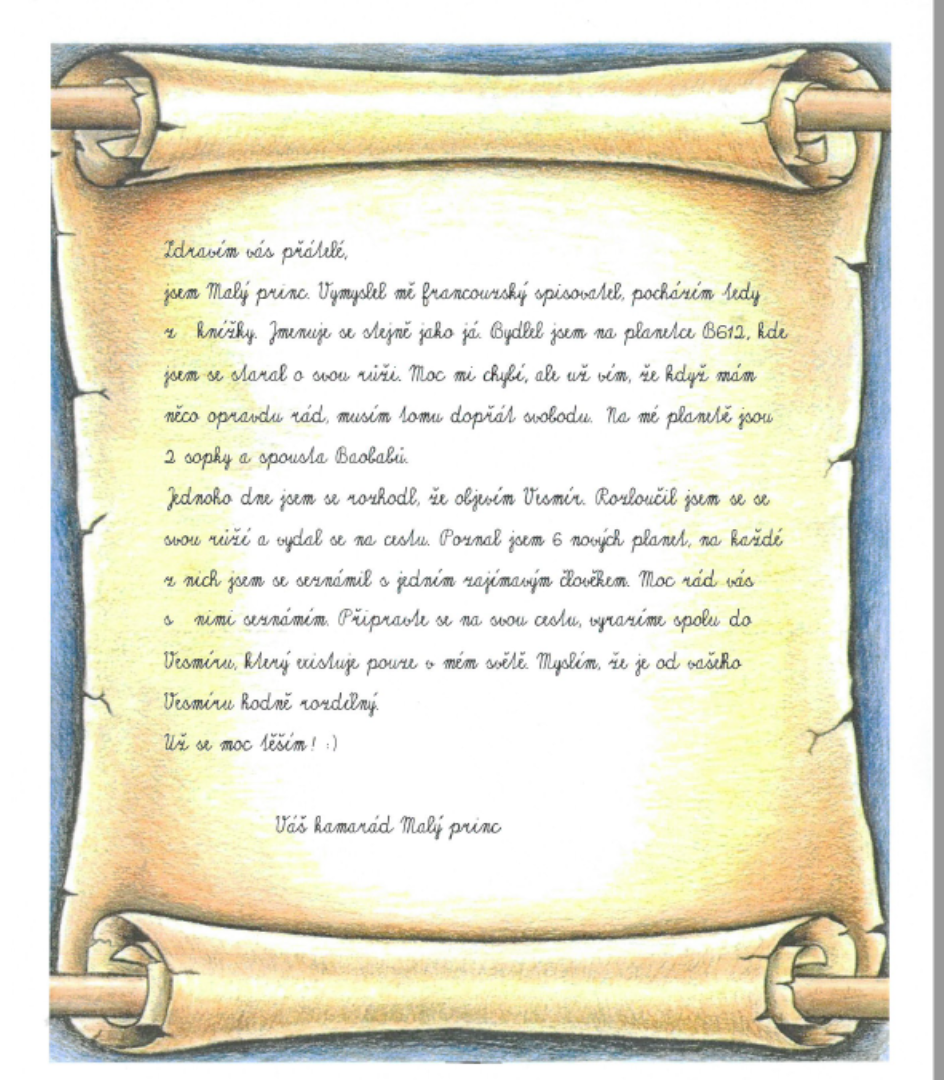 Zdravím vás přátelé,
jsem Malý princ. Vymyslel mě francouzský spisovatel, pocházím tedy
z knížky. Jmenuje se stejně jako já. Bydlel jsem na planetce B612, kde
jsem se staral o svou růži. Moc mi chybí, ale už vím, že když mám
něco opravdu rád, musím tomu dopřát svobodu. Na mé planetě jsou
2 sopky a spousta Baobabů.
Jednoho dne jsem se rozhodl, že objevím Vesmír. Rozloučil jsem se se
svou růží a vydal se na cestu. Poznal jsem 6 nových planet, na každé
z nich jsem se seznámil s jedním zajímavým člověkem. Moc rád vás
s nimi seznámím. Připravte se na svou cestu, vyrazíme spolu do
Vesmíru, který existuje pouze v mém světě. Myslím, že je od vašeho
Vesmíru hodně rozdílný.
Už se moc těším! :)
Váš kamarád Malý princ